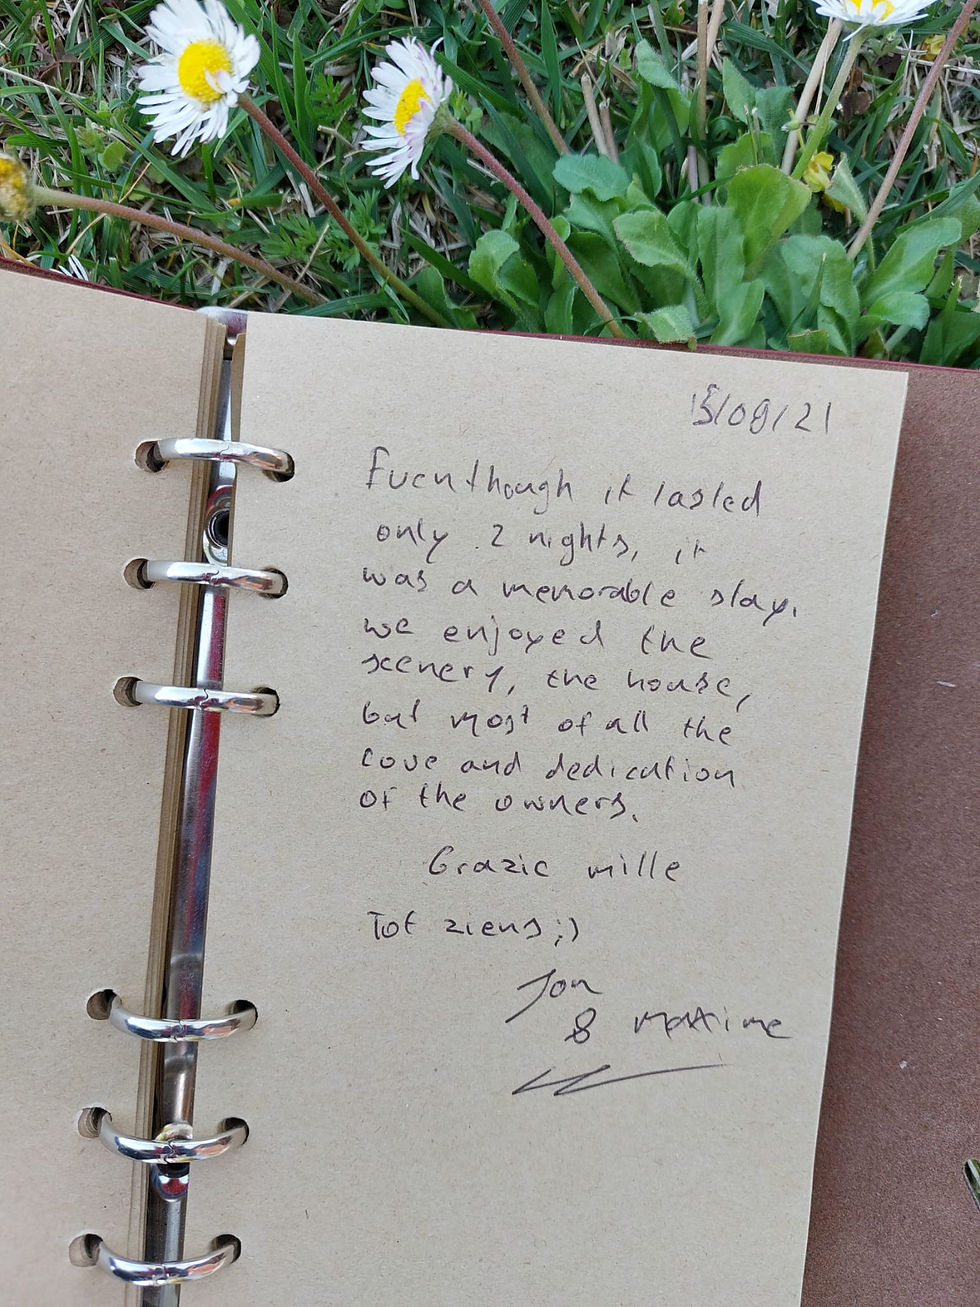 15/09/21
Eventhough it lasted
only 2 nights, it
was a memorable stay.
we enjoyed the
scenery, the house,
but most of all the
love and dedication
of the owners.
Grazie mille
Tot ziens ;)
Jon
& Maxime